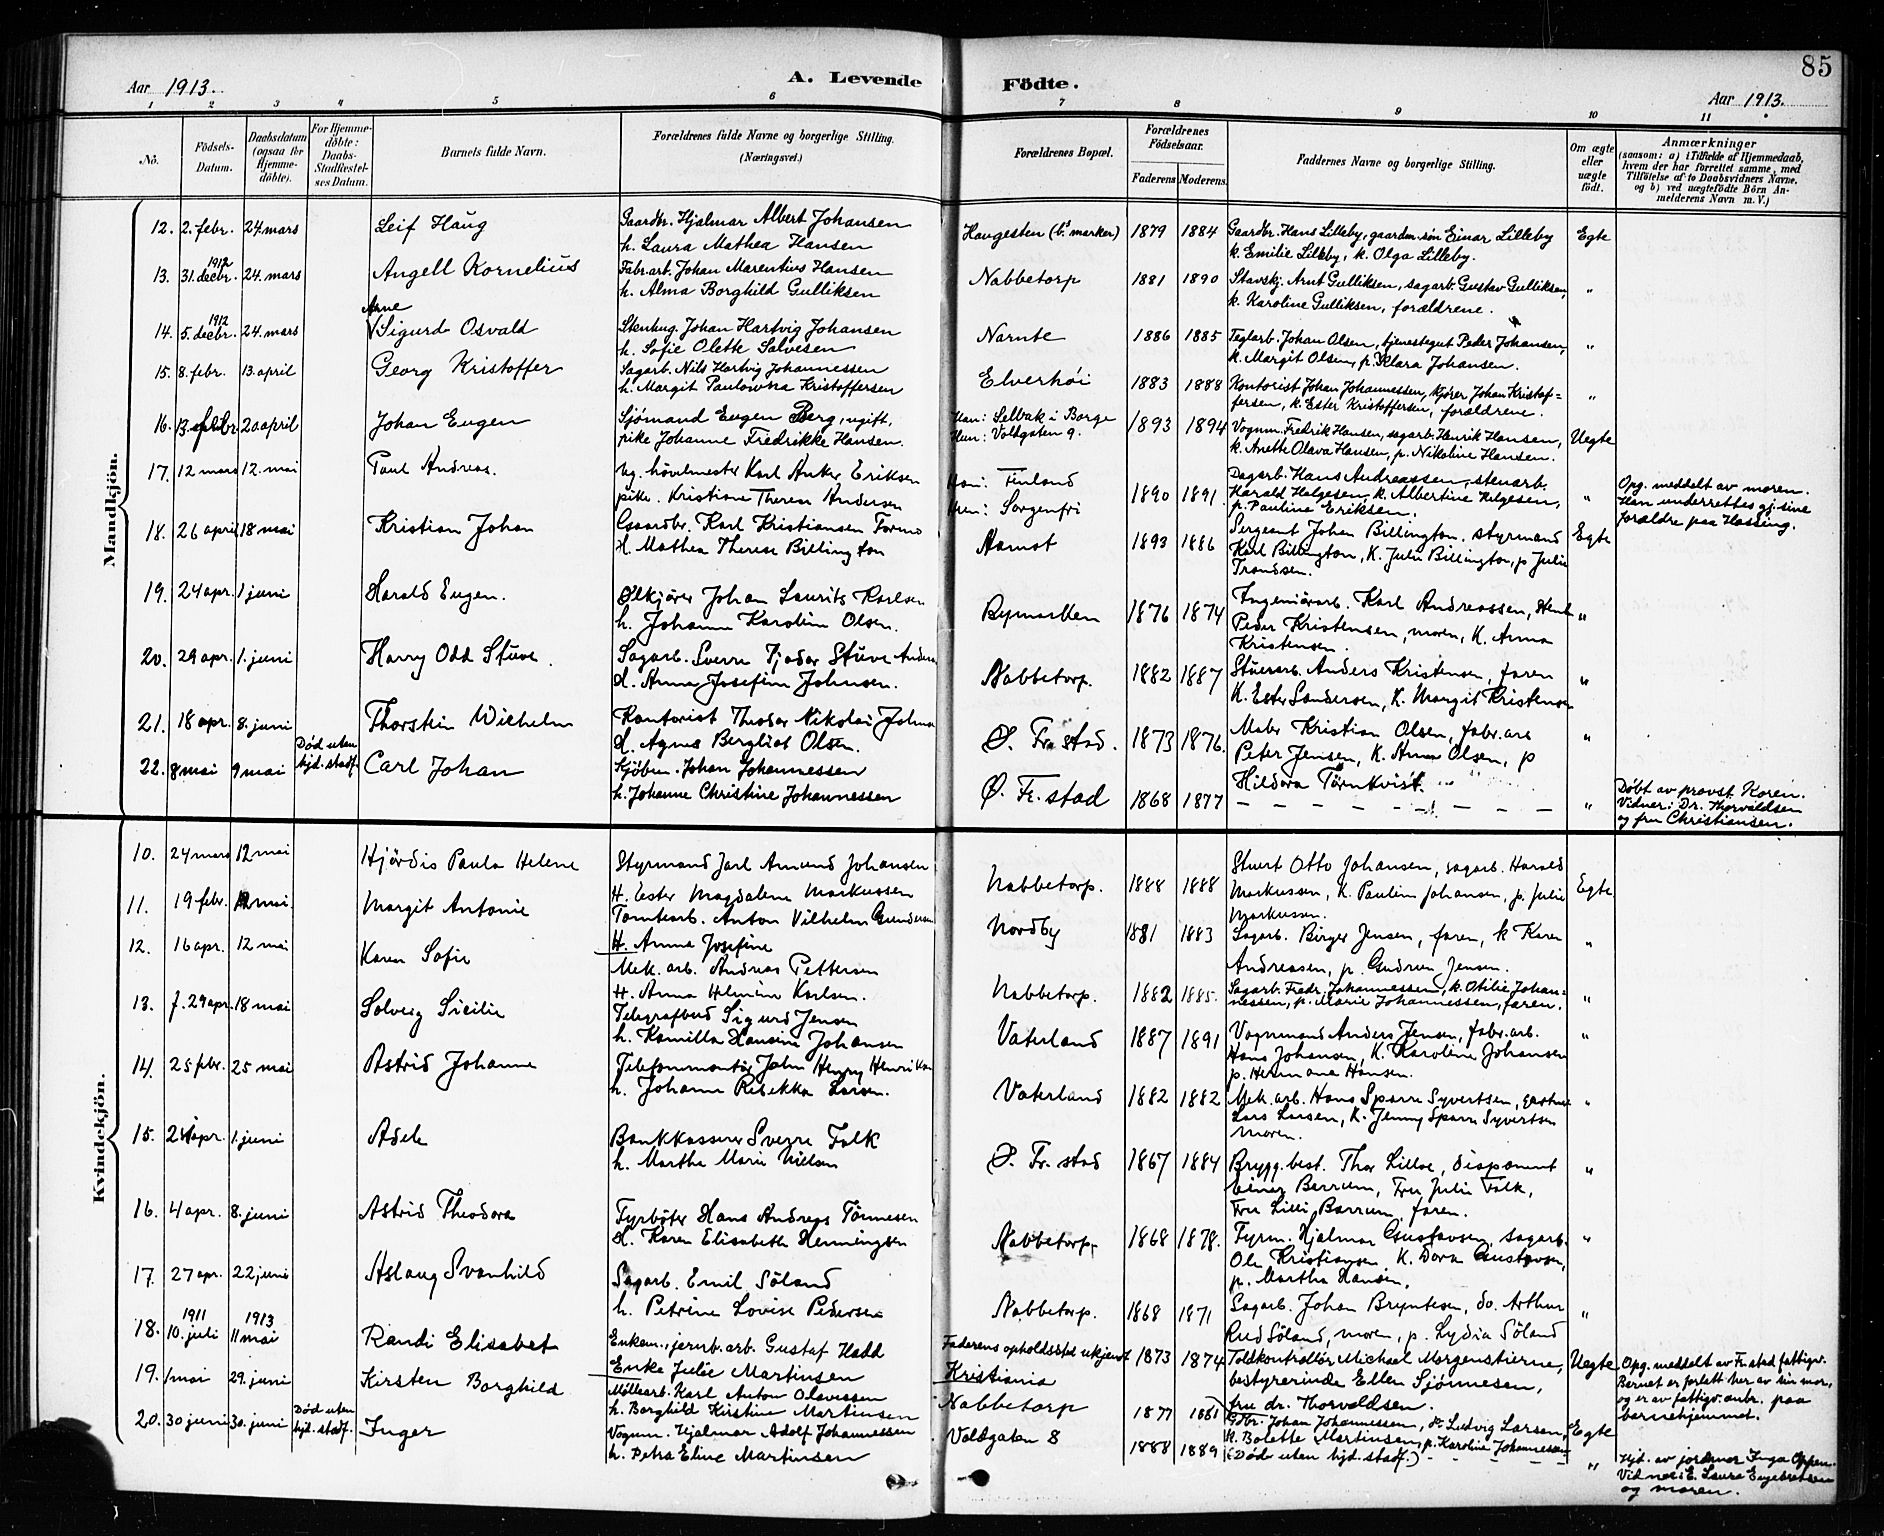 85
Aar 1913. A. Levende Födte. Aar 1913.
1 2 3 4 5 6 7 8 9 10 11
No. Födsels-Datum. Daabsdatum (ogsaa for Hjemme-döbte). For Hjemme-döbte: Daabs-Stadfæstel-ses Datum. Barnets fulde Navn. Forældrenes fulde Navne og borgerlige Stilling. (Næringsvei.) Forældrenes Bopæl. Forældrenes Födselsaar. Faderens Moderens. Faddernes Navne og borgerlige Stilling. Om ægte eller uægte födt. Anmærkninger (saasom: a) i Tilfælde af Hjemmedaab, hvem der har forrettet samme, med Tilföielse af to Daabsvidners Navne, og b) ved uægtefödte Börn An-melderens Navn m. V.)
Mandkjön.
12. 2. febr. 24. mars Leif Haug Gaardbr. Hjalmar Albert Johansen Haugesten (b. marken) 1879 1884 Gaardbr. Hans Lilleby, gaardm. søn Einar Lilleby Egte
h. Laura Mathea Hansen k. Emilie Lilleby, k. Olga Lilleby.
1912
13. 31. decbr. 24. mars Angell Kornelius Fabr.arb. Johan Marentius Hansen Nabbetorp 1881 1890 Stavskj. Arnt Gulliksen, sagarb. Gustav Gulliksen, "
h. Alma Borghild Gulliksen k. Karoline Gulliksen, forældrene.
1912 Arne
14. 5. decbr. 24. mars Sigurd Osvald Stenhug. Johan Hartvig Johansen Narnte 1886 1885 Teglarb. Johan Olsen, tjenestegut Peder Johansen, "
h. Sofie Olette Salvesen k. Margit Olsen, p. Klara Johansen.
15. 8. febr. 13. april Georg Kristoffer Sagarb. Nils Hartvig Johannessen Elverhöi 1883 1888 Kontorist Johan Johannessen, kjører Johan Kristof= "
h. Margit Paulovna Kristoffersen fersen, k. Ester Kristoffersen, forældrene.
16. 13. 20 april Johan Eugen Sjømand Eugen Berg, ugift, Han: Selbak i Borge 1893 1894 Vognm. Fredrik Hansen, sagarb. Henrik Hansen, Uegte
pike Johanne Fredrikke Hansen. Hun: Voldgaten 9. k. Anette Olava Hansen, p. Nikoline Hansen.
17. 12 mars 12. mai Paul Andreas. ug. høvelmester Karl Anker Eriksen Han: Finland 1890 1891 Dagarb. Hans Andreassen, stenarb. " Opg. meddelt av moren.
pike. Kristiane Therese Andersen Hun: Sorgenfri Harald Helgesen, k. Albertine Helgesen, Han underrettes gj. sine
p. Pauline Eriksen. forældre paa Hassing.
18. 26 april 18 mai Kristian Johan Gaardbr. Karl Kristiansen Formo Aamot 1893 1886 Sergeant Johan Billington, styrmand Egte
H. Mathea Therese Billington Karl Billington, K. Juli Billington, p Julie
Trondsen.
19. 24 apr. 1 juni Harald Eugen. Ølkjører Johan Laurits Karlsen Bymarken 1876 1874 Ingeniørarb. Karl Andreassen, "
h. Johanne Karoline Olsen. Peder Kristensen, moren, K. Anna
Kristensen.
20. 29 apr. 1. juni Harry Odd Stuve. Sagarb. Sverre Tjodar Stuve Anders Nabbetorp. 1882 1887 Stuerarb. Anders Kristensen, faren "
H. Anna Josefine Johnsen. K. Ester Sandersen, K. Margit Kristensen
21. 18 apr. 8. juni Thorstein Wilhelm Kontorist Theodor Nikolai Johns Ø. Fr. stad. 1873 1876. Maler Kristian Olsen, fabr. arb "
H. Agnes Bergliot Olsen. Peter Jensen, K. Anna Olsen, p
Hildora Törnkvist.
22. 8 mai 9 mai Død uten hjd. stadf. Carl Johan Kjöbm. Johan Johannessen Ø. Fr. stad 1868 1877 – – – – – – – – " Døbt av provst Koren.
h. Johanne Christine Johannessen Vidner: Dr. Thorvaldsen
og fru Christiansen.
Kvindekjön.
10. 24 mars 12 mai Hjördis Paula Helene Styrmand Jarl Amund Johansen Nabbetorp. 1888 1888 Stuert Otto Johansen, sagarb. Harald Egte
H. Ester Magdalene Markussen Markussen, K. Pauline Johansen, p. Julie
Markussen.
11. 19 febr. 12 mai. Margit Antonie Tomtearb. Anton Vilhelm Gundersen Nordby 1881 1883 Sagarb. Birger Jensen, faren, k Karen "
H. Anna Josefine Andreasen, p. Gudrun Jensen.
12. 16 apr. 12 mai Karen Sofie Mek. arb. Andreas Pettersen Nabbetorp. 1882 1885. Sagarb. Fredr. Johannessen, k. Otilie Johan= "
H. Anna Helmine Karlsen. nessen, p. Marie Johannessen, faren.
13. f. 29 apr. 18 mai Solveig Sicilie Telegrafbud Sigurd Jensen Vaterland 1887 1891 Vognmand Anders Jensen, fabr. arb. "
h. Kamilla Hansine Johansen Hans Johansen, K. Karoline Johansen
p. Hermana Hansen.
14. 25 febr. 25 mai Astrid Johanne Telefonmontör John Henry Henriksen Vaterland 1882 1882 Mek. arb. Hans Sparre Syvertsen, "
h. Johanne Rebekka Larsen. Lars Larsen, K. Jenny Sparre Syvertsen
moren.
15. 24 apr. 1. juni Adele Bankkasserer Sverre Falk Ø. Fr. stad 1867 1884 Brygg. best. Thor Lilloe, disponent "
h. Martha Marie Nielsen Einar Barrum, Fru Julie Falk,
Fru Lilli Barrum, faren.
16. 4 apr. 8. juni Astrid Theodora Fyrbøter Hans Andreas Tönnesen Nabbetorp. 1868 1878. Fyrm. Hjalmar Gustavsen, sagarb. "
H. Karen Elisabeth Henningsen Ole Kristiansen, K. Dora Gustavsen,
p. Martha Hansen,
17. 27 apr. 22 juni Aslaug Svanhild Sagarb. Emil Söland Nabbetorp. 1868 1871 Sagarb. Johan Bryntesen, do. Arthur "
h. Petrine Lovise Pedersen Rud Söland, moren, p. Lydia Söland
1911 1913
18. 10. juli 11 mai Randi Elisabet Enkem., jernb. arb. Gustaf Hadd Faderens opholdssted ukjendt 1873 1874 Toldkontrollør Michael Morgenstierne, Uegte Opg. meddelt av Fr. stad fattigv.
Enke Julie Martinsen Kristiania bestyrerinde Ellen Sjönnesen, Barnet er forlatt her av sin mor,
fru dr. Thorvaldsen. og er av fattigv. anbr. paa
barnehjemmet.
19. 1 mai 29. juni Kirsten Borghild Møllearb. Karl Anton Olavesen Nabbetorp 1877 1881 Gdbr. Johan Johannessen, do Ludvig Larsen, Egte
h. Borghild Kirstine Martinsen K. Bolette Martinsen, p. Karoline Johannessen
20. 30 juni 30. juni Død uten hjd. stadf. Inger Vognm. Hjalmar Adolf Johannessen Voldgaten 8 1888 1889 (Død uten hjd. stadf.) – – – – " Hjd. av jordmor Inga Oppen.
h. Petra Eline Martinsen Vidner: E. Laura Engebretsen
og moren.